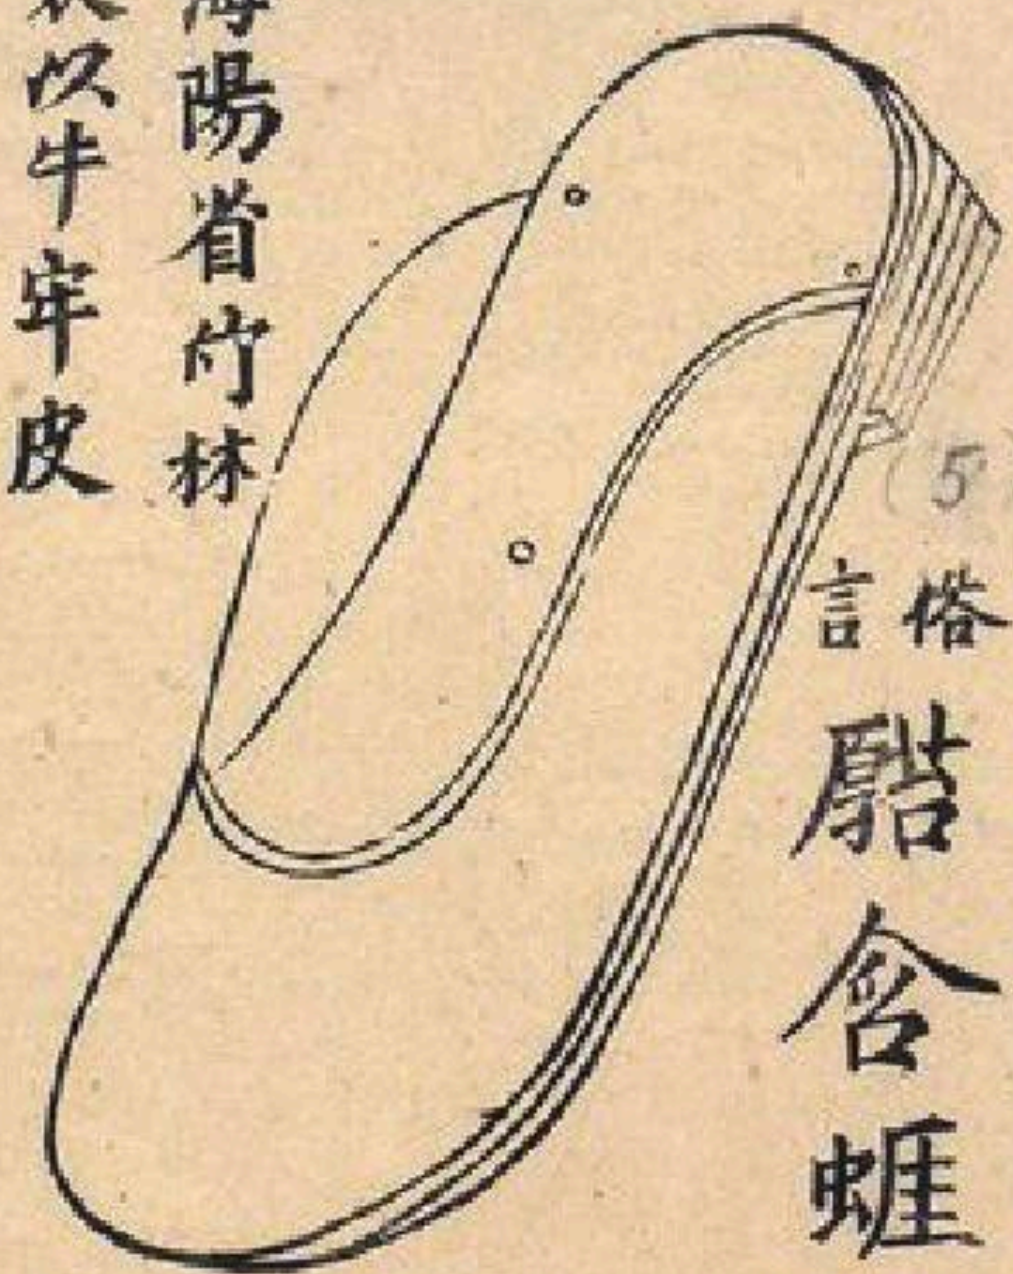 (5)
俗言
含
海陽省竹林
以牛牢皮